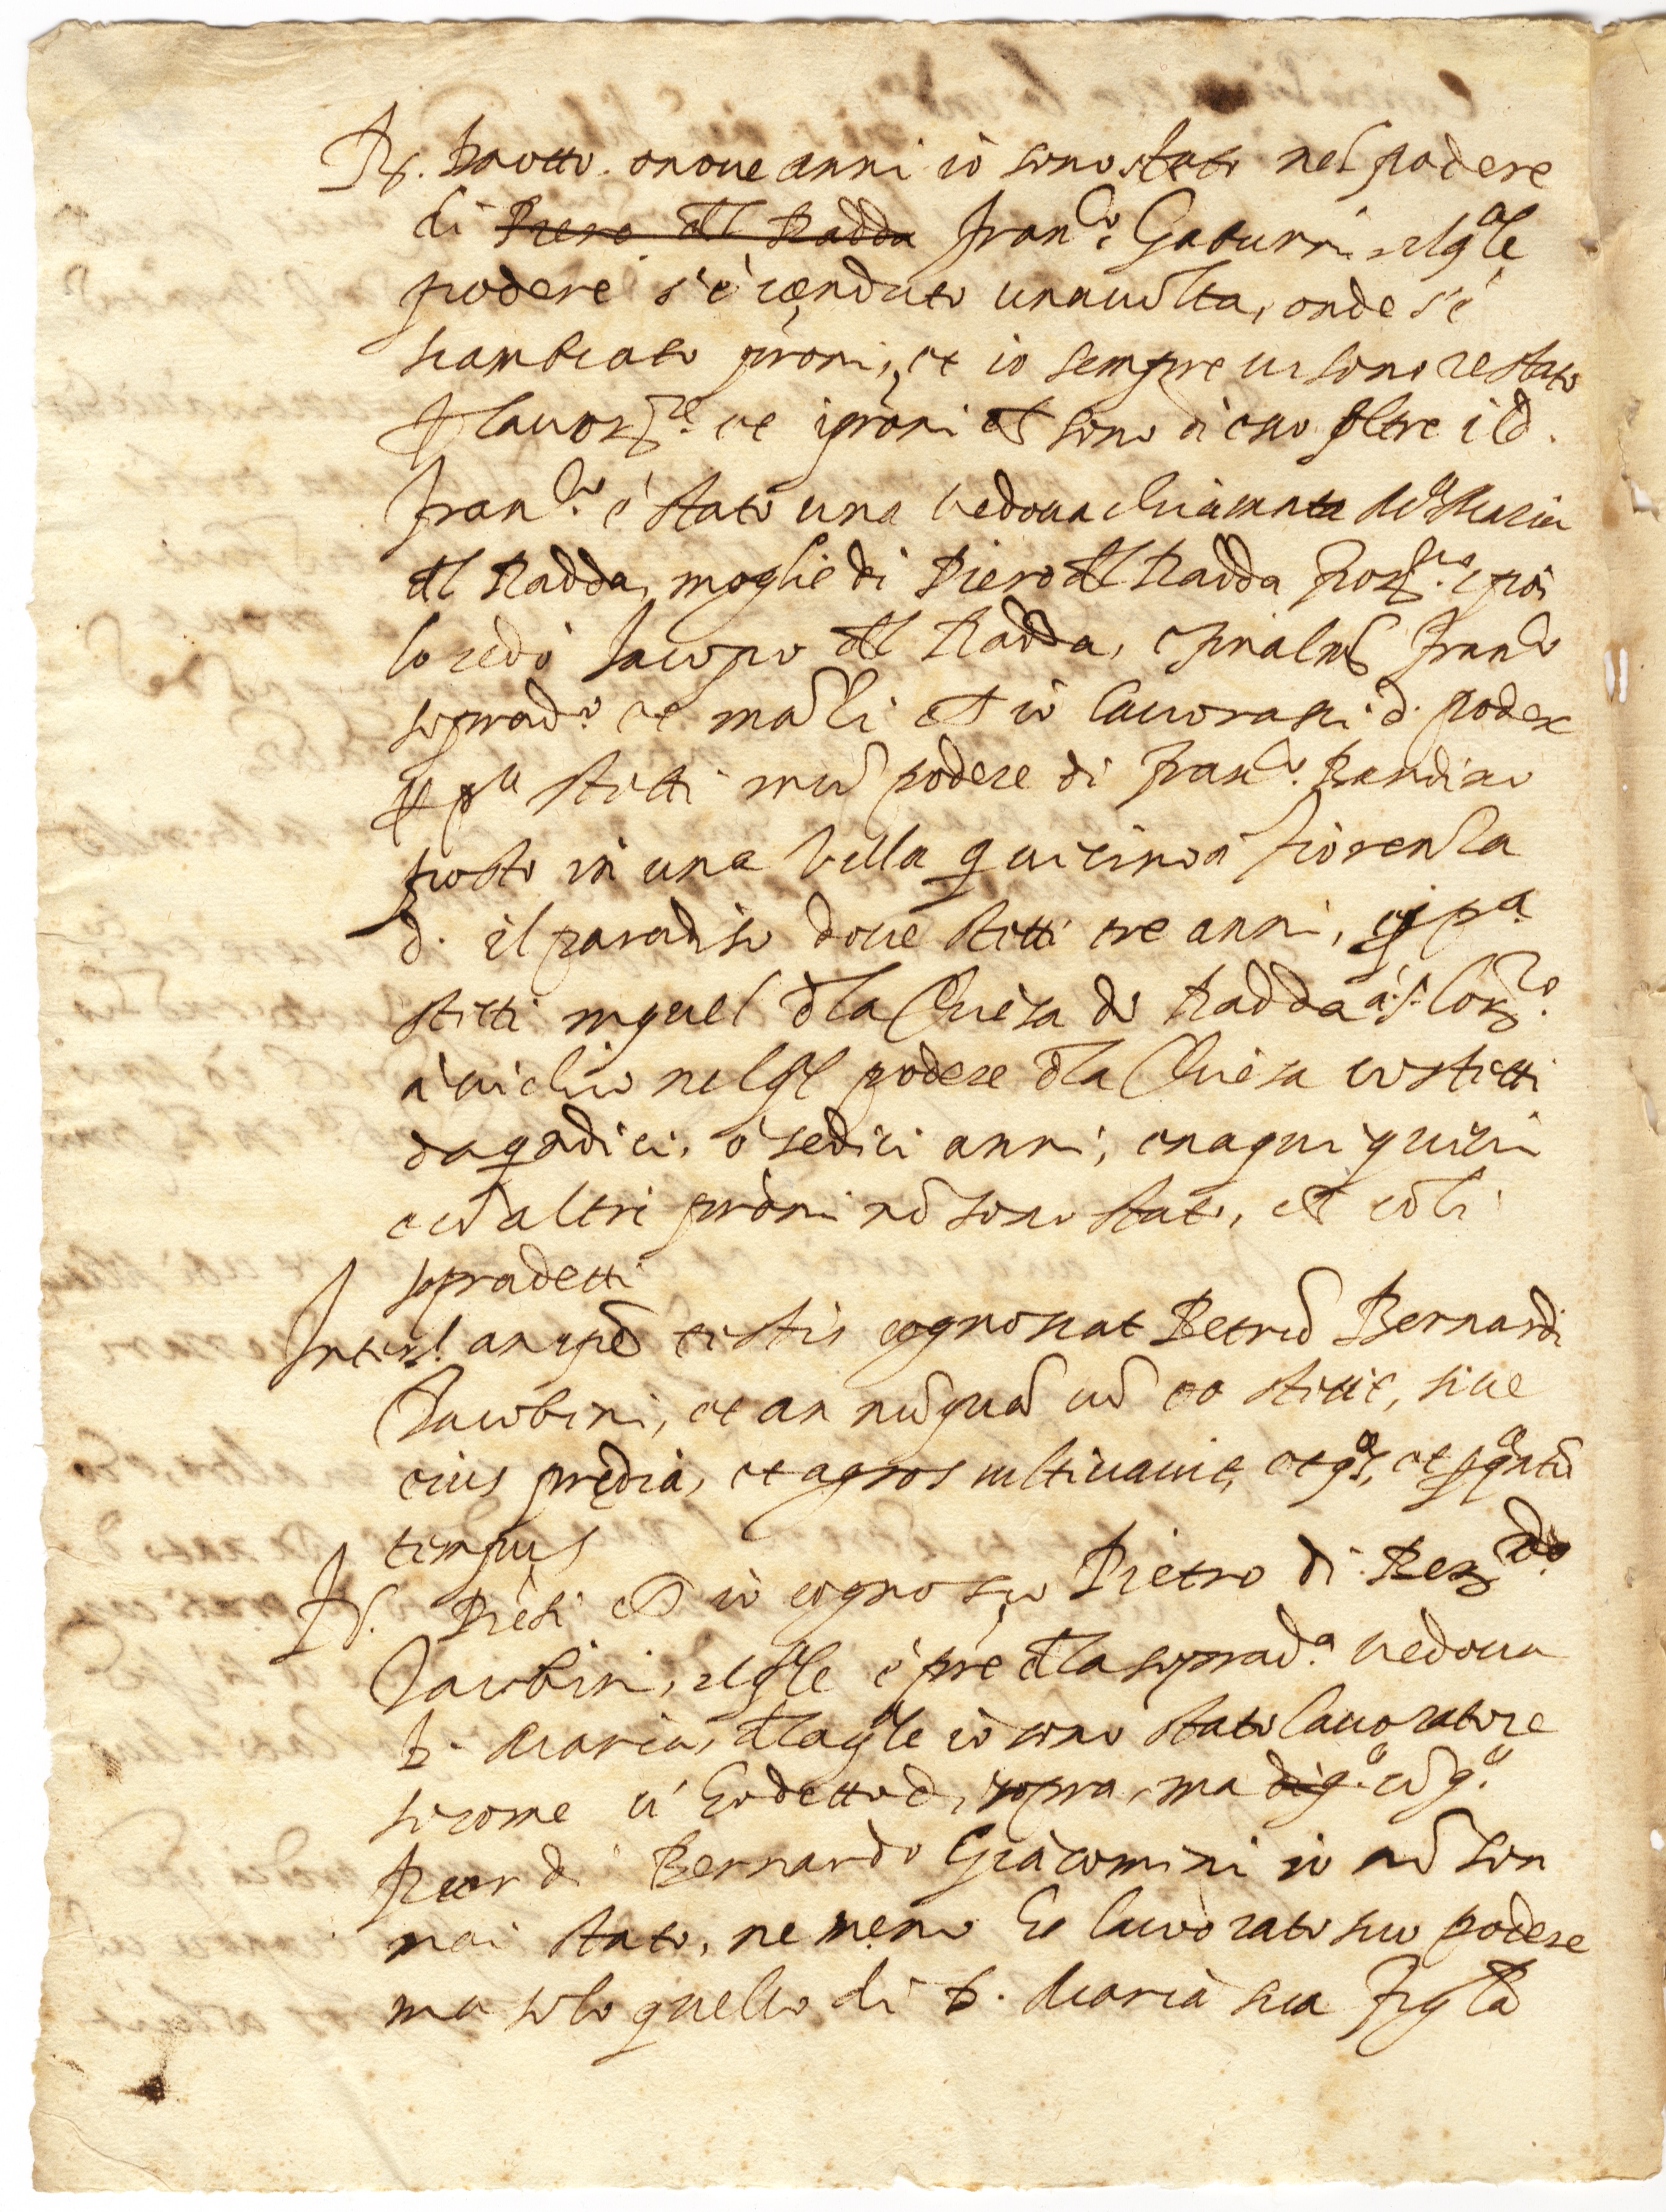 R. Da otto o noue anni io sono stato nel podere
di Piero del Radda Franco Gaburri, el qle
podere s'è uenduto una uolta, onde s'è
scambiato proni, et io sempre ui sono restato
lauorre et i proni ch sono di esso oltre il d.
Franco è stato una uedoua chiamata Ma Maria
del Radda, moglie di Piero del Radda e poi
lo redò Iacopo del Radda, e finalmte Franco
soprado et inanzi ch io lauorassi d. podere
stetti in un podere di Franco Bandino
posto in una Villa qui uicino a Fiorenza
d. il paradiso doue stetti tre anni, e pa
stetti in quel dla Chiesa di Radda a S. Lorzo
a uichio nel ql podere dla Chiesa io stetti
da qndici, o sedici anni, e
altri proni nō sono stato, ch cō li
sopradetti
Interr. an ipse testis cognoscat Petrū Bernardi
Iacobini, et an nūquā cū eo stetit, siue
eius predia, et agros cultiuauit, et qo, et p qantū
tempus
R. Disse ch io cognosco Pietro di Berdo
Iacobini, el qle è pre dla soprada uedoua
D. Maria, dla qle io sono stato lauoratore
sicome ui ho detto di sopra, ma di qo cō qo
Pier di Bernardo Giacomini io nō son
mai stato, ne meno ho lauorato suo podere
ma solo quello di D. Maria sua figla